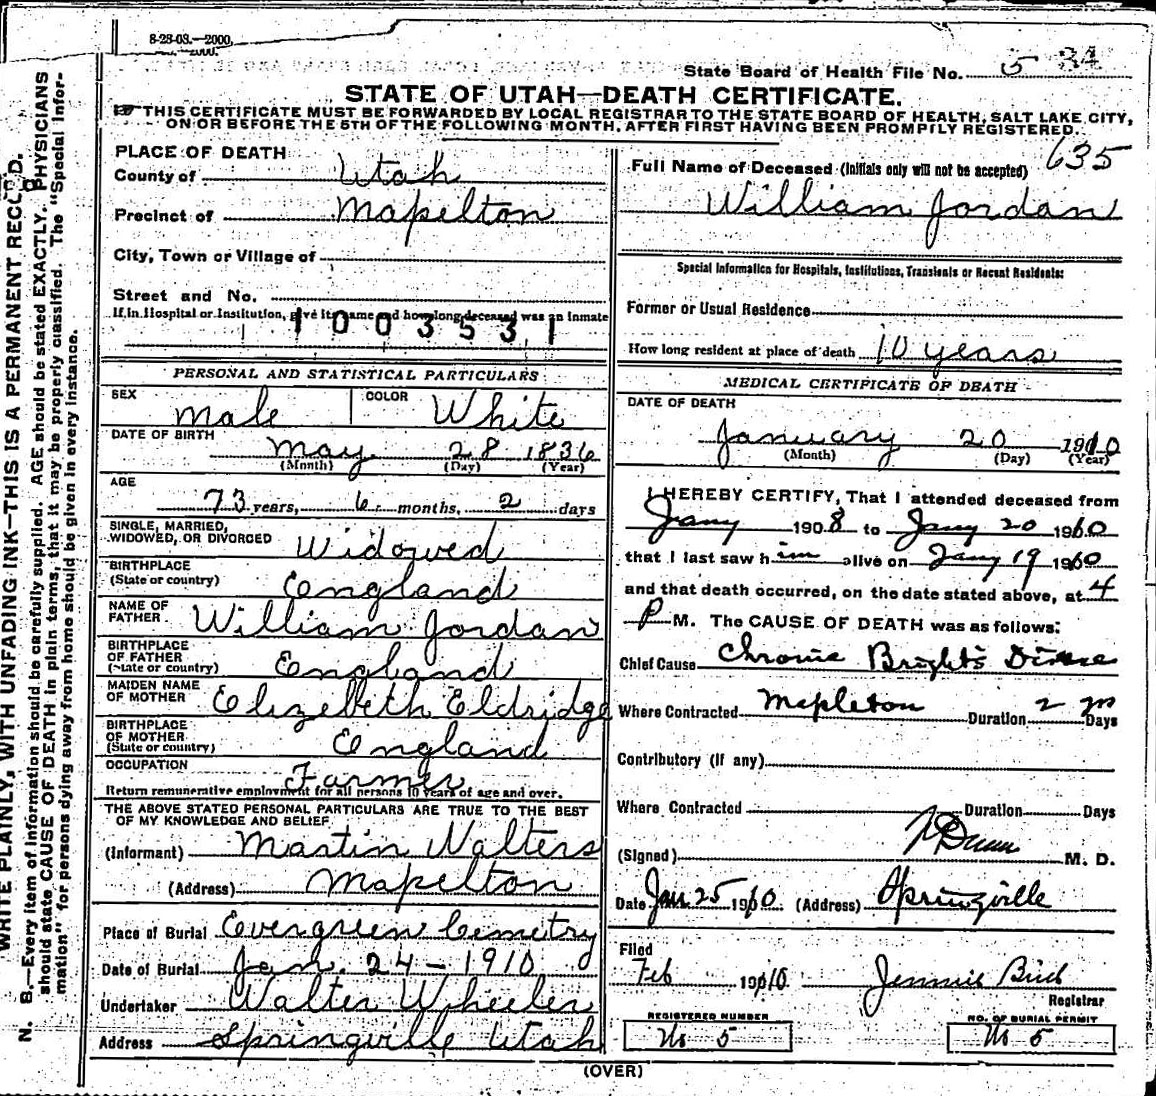 8-28-08.—2000.
State Board of Health File No. 5 34
STATE OF UTAH—DEATH CERTIFICATE.
☞ THIS CERTIFICATE MUST BE FORWARDED BY LOCAL REGISTRAR TO THE STATE BOARD OF HEALTH, SALT LAKE CITY,
ON OR BEFORE THE 5TH OF THE FOLLOWING MONTH, AFTER FIRST HAVING BEEN PROMPTLY REGISTERED.
WRITE PLAINLY, WITH UNFADING INK—THIS IS A PERMANENT RECORD.
N. B.—Every item of information should be carefully supplied. AGE should be stated EXACTLY. PHYSICIANS
should state CAUSE OF DEATH in plain terms, that it may be properly classified. The "Special Infor-
mation" for persons dying away from home should be given in every instance.
PLACE OF DEATH
County of Utah
Precinct of Mapelton
City, Town or Village of
Street and No.
If in Hospital or Institution, give its name and how long deceased was an inmate
1003531
PERSONAL AND STATISTICAL PARTICULARS
SEX Male COLOR White
DATE OF BIRTH May 28 1836
(Month) (Day) (Year)
AGE
73 years, 6 months, 2 days
SINGLE, MARRIED,
WIDOWED, OR DIVORCED Widowed
BIRTHPLACE
(State or country) England
NAME OF
FATHER William Jordan
BIRTHPLACE
OF FATHER
(State or country) England
MAIDEN NAME
OF MOTHER Elizebeth Eldridge
BIRTHPLACE
OF MOTHER
(State or country) England
OCCUPATION Farmer
Return remunerative employment for all persons 10 years of age and over.
THE ABOVE STATED PERSONAL PARTICULARS ARE TRUE TO THE BEST
OF MY KNOWLEDGE AND BELIEF
(Informant) Martin Walters
(Address) Mapelton
Place of Burial Evergreen Cemetry
Date of Burial Jan. 24 - 1910
Undertaker Walter Wheeler
Address Springville Utah
635
Full Name of Deceased (Initials only will not be accepted)
William Jordan
Special Information for Hospitals, Institutions, Transients or Recent Residents:
Former or Usual Residence
How long resident at place of death 10 years
MEDICAL CERTIFICATE OF DEATH
DATE OF DEATH
January 20 1910
(Month) (Day) (Year)
I HEREBY CERTIFY, That I attended deceased from
Jany 1908 to Jany 20 1910
that I last saw him alive on Jany 19 1910
and that death occurred, on the date stated above, at 4
P M. The CAUSE OF DEATH was as follows:
Chief Cause Chronic Bright's Disease
Where Contracted Mapleton Duration 2 yrs Days
Contributory (if any)
Where Contracted Duration Days
(Signed) Dunn M. D.
Date Jan. 25 1910 (Address) Springville
Filed
Feb 1910 Jennie Bird
Registrar
REGISTERED NUMBER
No 5
NO. OF BURIAL PERMIT
No 5
(OVER)